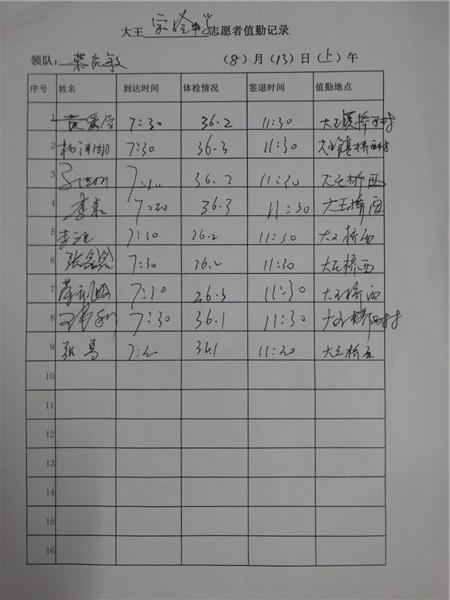 大王 中学志愿者值勤记录
领队: (8)月(13)日(上)午
序号 姓名 到达时间 体检情况 签退时间 值勤地点
1 7:30 36.2 11:30 大王镇桥西村
2 7:30 36.3 11:30 大王镇桥西村
3 36.2 11:30 大王桥西
4 李嘉 7:20 36.3 11:30 大王桥西
5 7:30 36.2 11:30 大王桥西
6 张鑫鑫 7:30 36.2 11:30 大王桥西
7 7:30 36.3 11:30 大王桥西
8 7:30 36.1 11:30 大王桥西村
9 张马 36.1 大王桥西
10
11
12
13
14
15
16